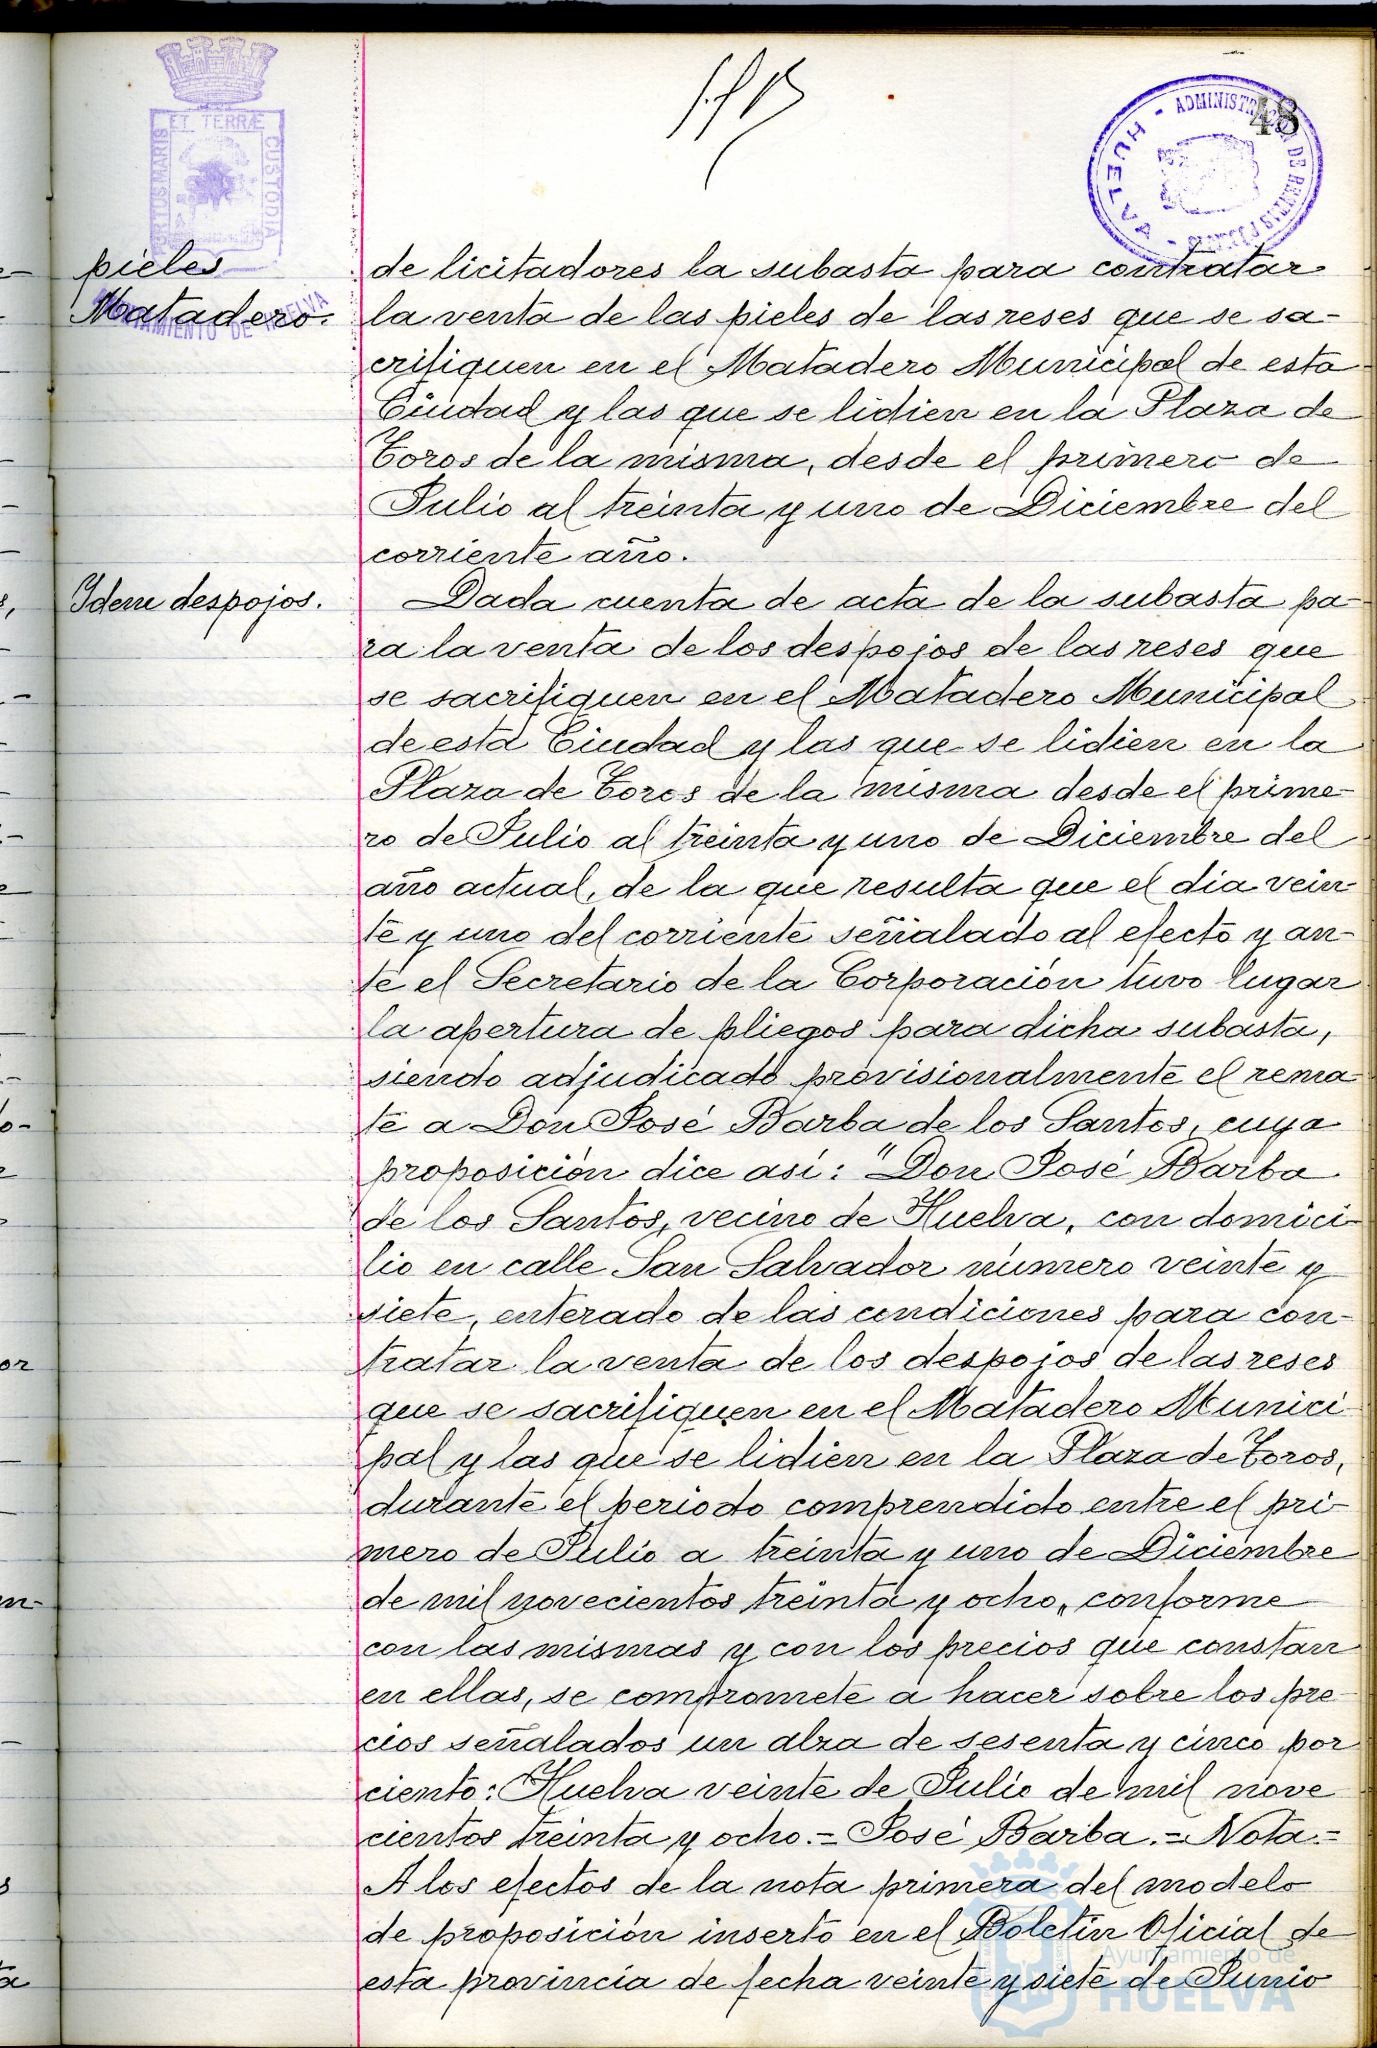 48
ADMINISTR DE RENTAS
HUELVA
PORTUS MARIS ET TERRÆ CUSTODIA
AYUNTAMIENTO DE HUELVA
pieles
Matadero.
de licitadores la subasta para contratar
la venta de las pieles de las reses que se sa-
crifiquen en el Matadero Municipal de esta
Ciudad y las que se lidien en la Plaza de
Toros de la misma, desde el primero de
Julio al treinta y uno de Diciembre del
corriente año.
Idem despojos.
Dada cuenta de acta de la subasta pa-
ra la venta de los despojos de las reses que
se sacrifiquen en el Matadero Municipal
de esta Ciudad y las que se lidien en la
Plaza de Toros de la misma desde el prime-
ro de Julio al treinta y uno de Diciembre del
año actual, de la que resulta que el dia vein-
te y uno del corriente señalado al efecto y an-
te el Secretario de la Corporación tuvo lugar
la apertura de pliegos para dicha subasta,
siendo adjudicado provisionalmente el rema-
te a Don José Barba de los Santos, cuya
proposición dice asi: "Don José Barba
de los Santos, vecino de Huelva, con domici-
lio en calle San Salvador número veinte y
siete, enterado de las condiciones para con-
tratar la venta de los despojos de las reses
que se sacrifiquen en el Matadero Munici-
pal y las que se lidien en la Plaza de Toros,
durante el periodo comprendido entre el pri-
mero de Julio a treinta y uno de Diciembre
de mil novecientos treinta y ocho, conforme
con las mismas y con los precios que constan
en ellas, se compromete a hacer sobre los pre-
cios señalados un alza de sesenta y cinco por
ciento: Huelva veinte de Julio de mil nove
cientos treinta y ocho.= José Barba.= Nota.=
A los efectos de la nota primera del modelo
de proposición inserto en el Boletin Oficial de
esta provincia de fecha veinte y siete de Junio
Ayuntamiento de
HUELVA